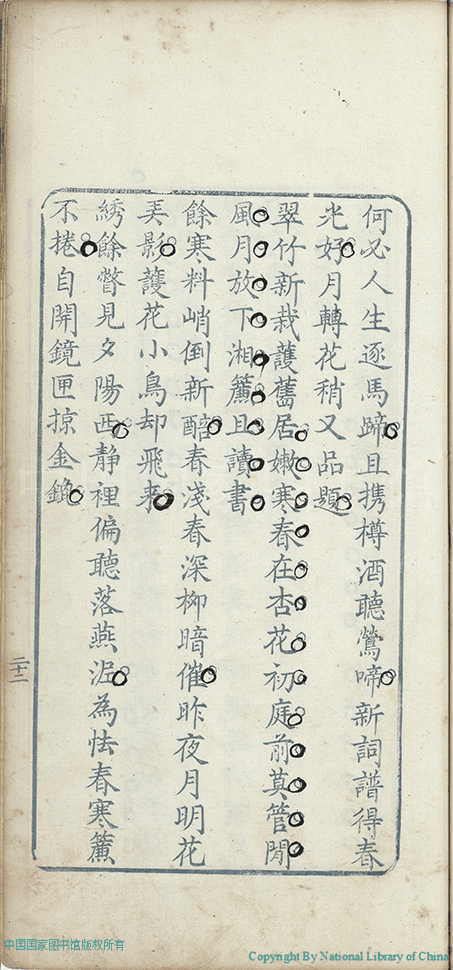 何必人生逐馬蹄且携樽酒聽鶯啼新詞譜得春
光好月轉花稍又品題
翠竹新栽護舊居嫩寒春在杏花初庭前莫管閒
風月放下湘簾且讀書
餘寒料峭倒新醅春淺春深柳暗催昨夜月明花
弄影護花小鳥却飛来
綉餘瞥見夕陽西静裡偏聽落燕泥為怯春寒簾
不捲自開鏡匣掠金
二十二
中国国家图书馆版权所有
Copyright By National Library of China